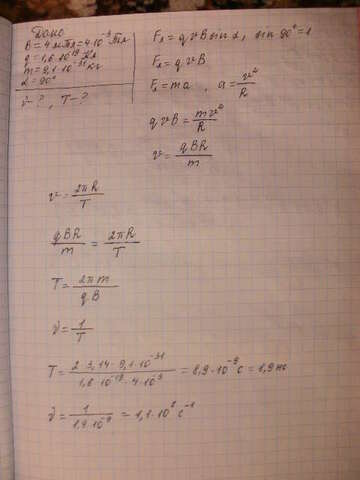 Дано
B = 4 мТл = 4·10⁻³ Тл
q = 1,6·10⁻¹⁹ Кл
m = 9,1·10⁻³¹ кг
α = 90°
ν - ?, T - ?
Fл = qvB sin α, sin 90° = 1
Fл = qvB
Fл = ma, a = v²/R
qvB = mv²/R
v = qBR/m
v = 2πR/T
qBR/m = 2πR/T
T = 2πm/qB
ν = 1/T
T = 2·3,14·9,1·10⁻³¹/1,6·10⁻¹⁹·4·10⁻³ = 8,9·10⁻⁹ c = 8,9 нс
ν = 1/8,9·10⁻⁹ = 1,1·10⁸ c⁻¹